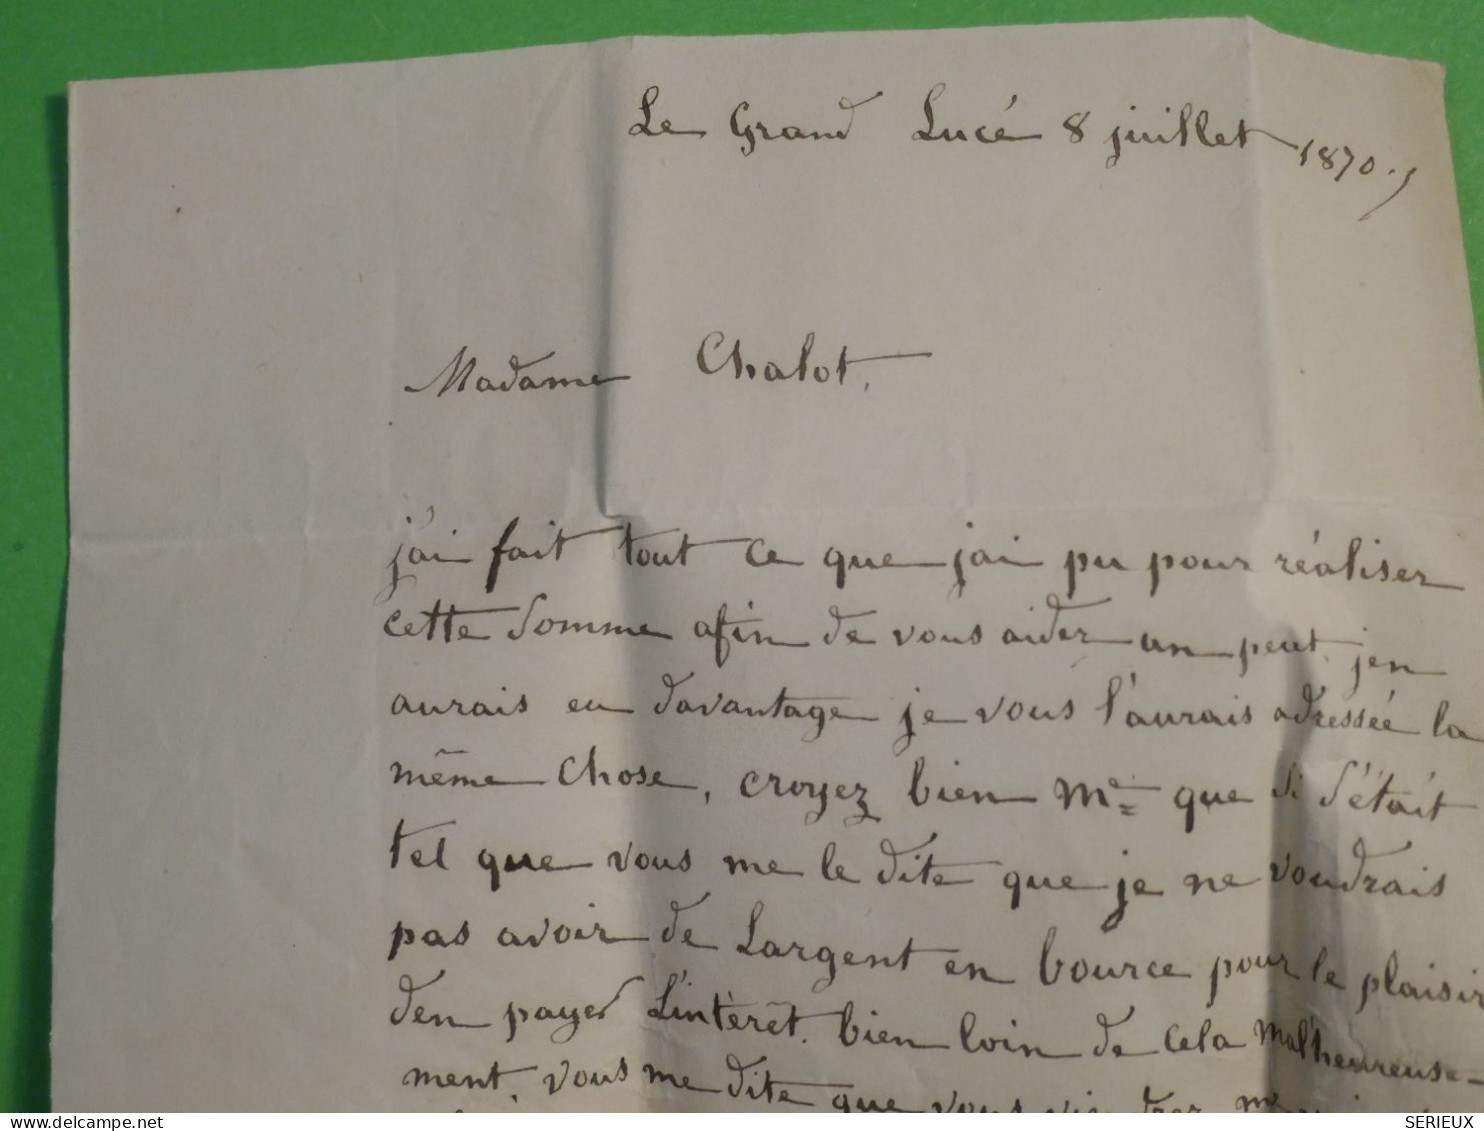 Le Grand Lucé 8 juillet 1870.
Madame Chalot,
j'ai fait tout ce que jai pu pour réaliser
cette Somme afin de vous aider un peut jen
aurais eu davantage je vous l'aurais adressée la
même chose, croyez bien Me que si s'était
tel que vous me le dite que je ne voudrais
pas avoir de Largent en bource pour le plaisir
den payer L'intèrêt. bien loin de cela mal'heureuse-
ment, vous me dite que vous
SERIEUX